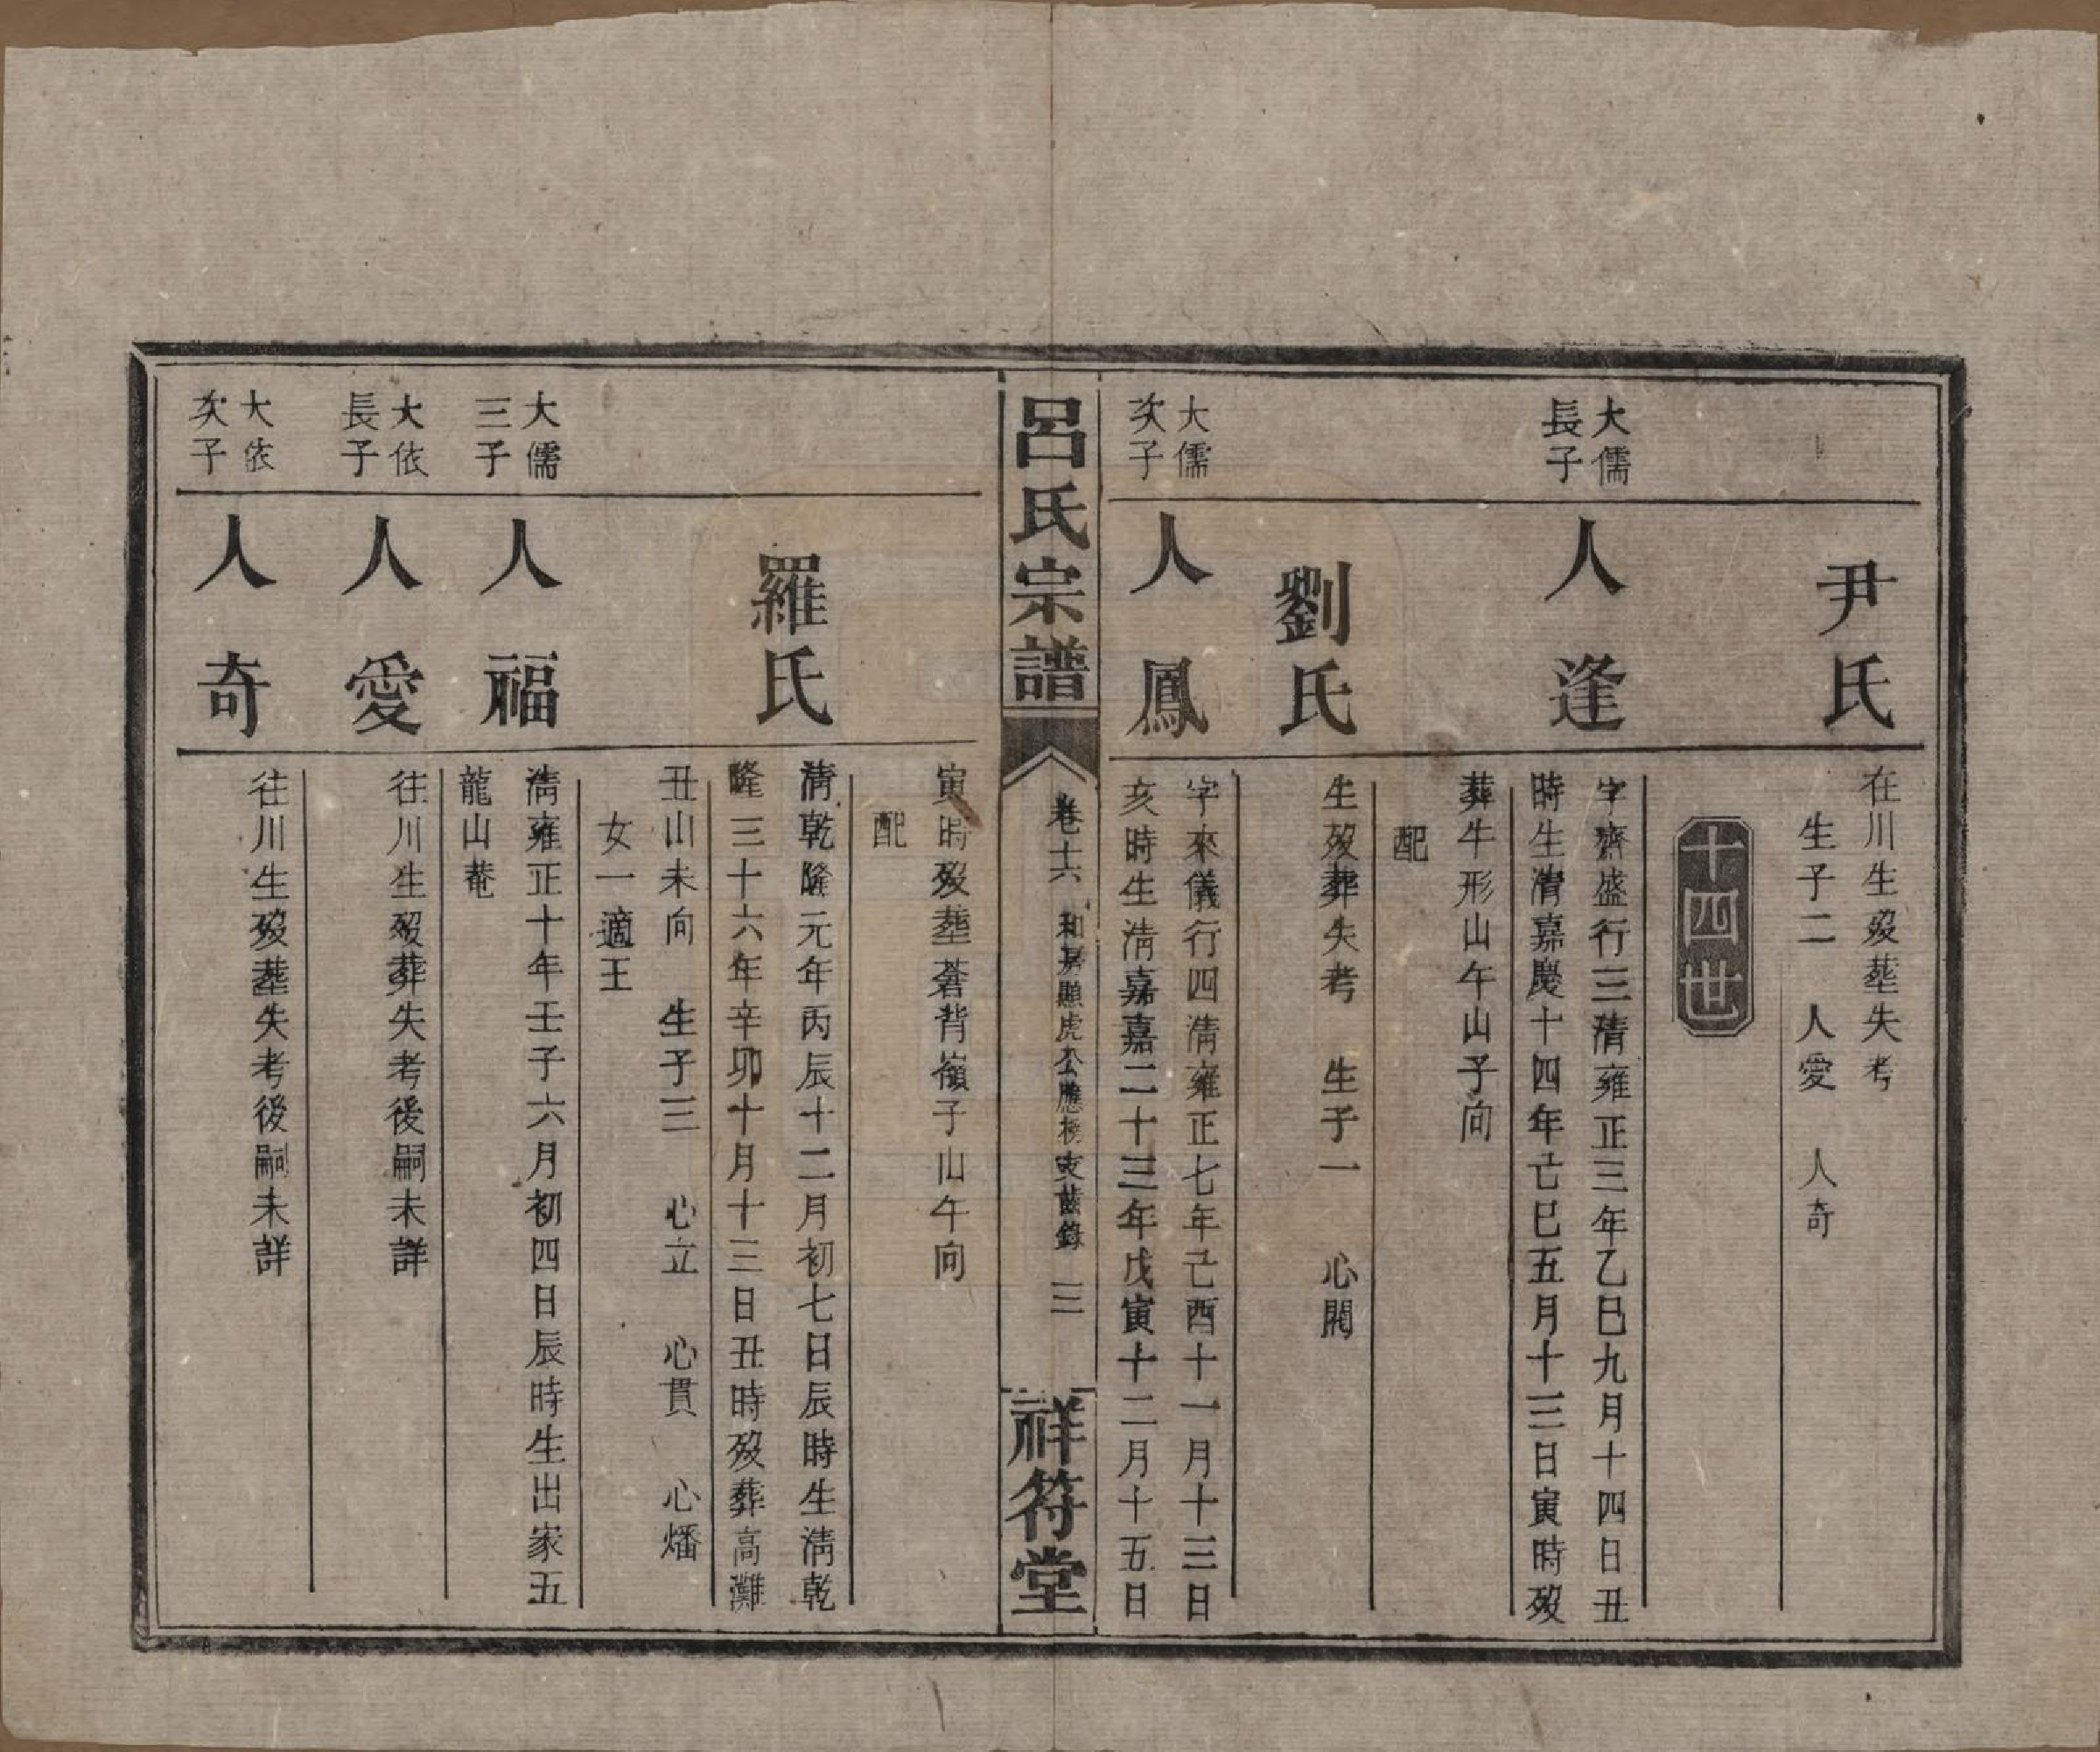 尹氏
在川生歿塟失考
生子二　人愛　人奇
十四世
大儒
長子
人逢
字齊盛行三清雍正三年乙巳九月十四日丑
時生清嘉慶十四年亡巳五月十三日寅時歿
葬牛形山午山子向
劉氏
配
生歿葬失考　生子一　心閣
大儒
次子
人鳳
字來儀行四清雍正七年己酉十一月十三日
亥時生清嘉嘉二十三年戊寅十二月十五日
呂氏宗譜
卷十六　和房顯虎公應楊支齒錄　三
祥符堂
寅時歿塟蒼背嶺子山午向
羅氏
配
清乾隆元年丙辰十二月初七日辰時生清乾
隆三十六年辛卯十月十三日丑時歿葬高灘
丑山未向　生子三　心立　心貫　心燔
女一適王
大儒
三子
人福
清雍正十年壬子六月初四日辰時生出家五
龍山菴
大依
長子
人愛
往川生歿葬失考後嗣未詳
大依
次子
人奇
往川生歿塟失考後嗣未詳